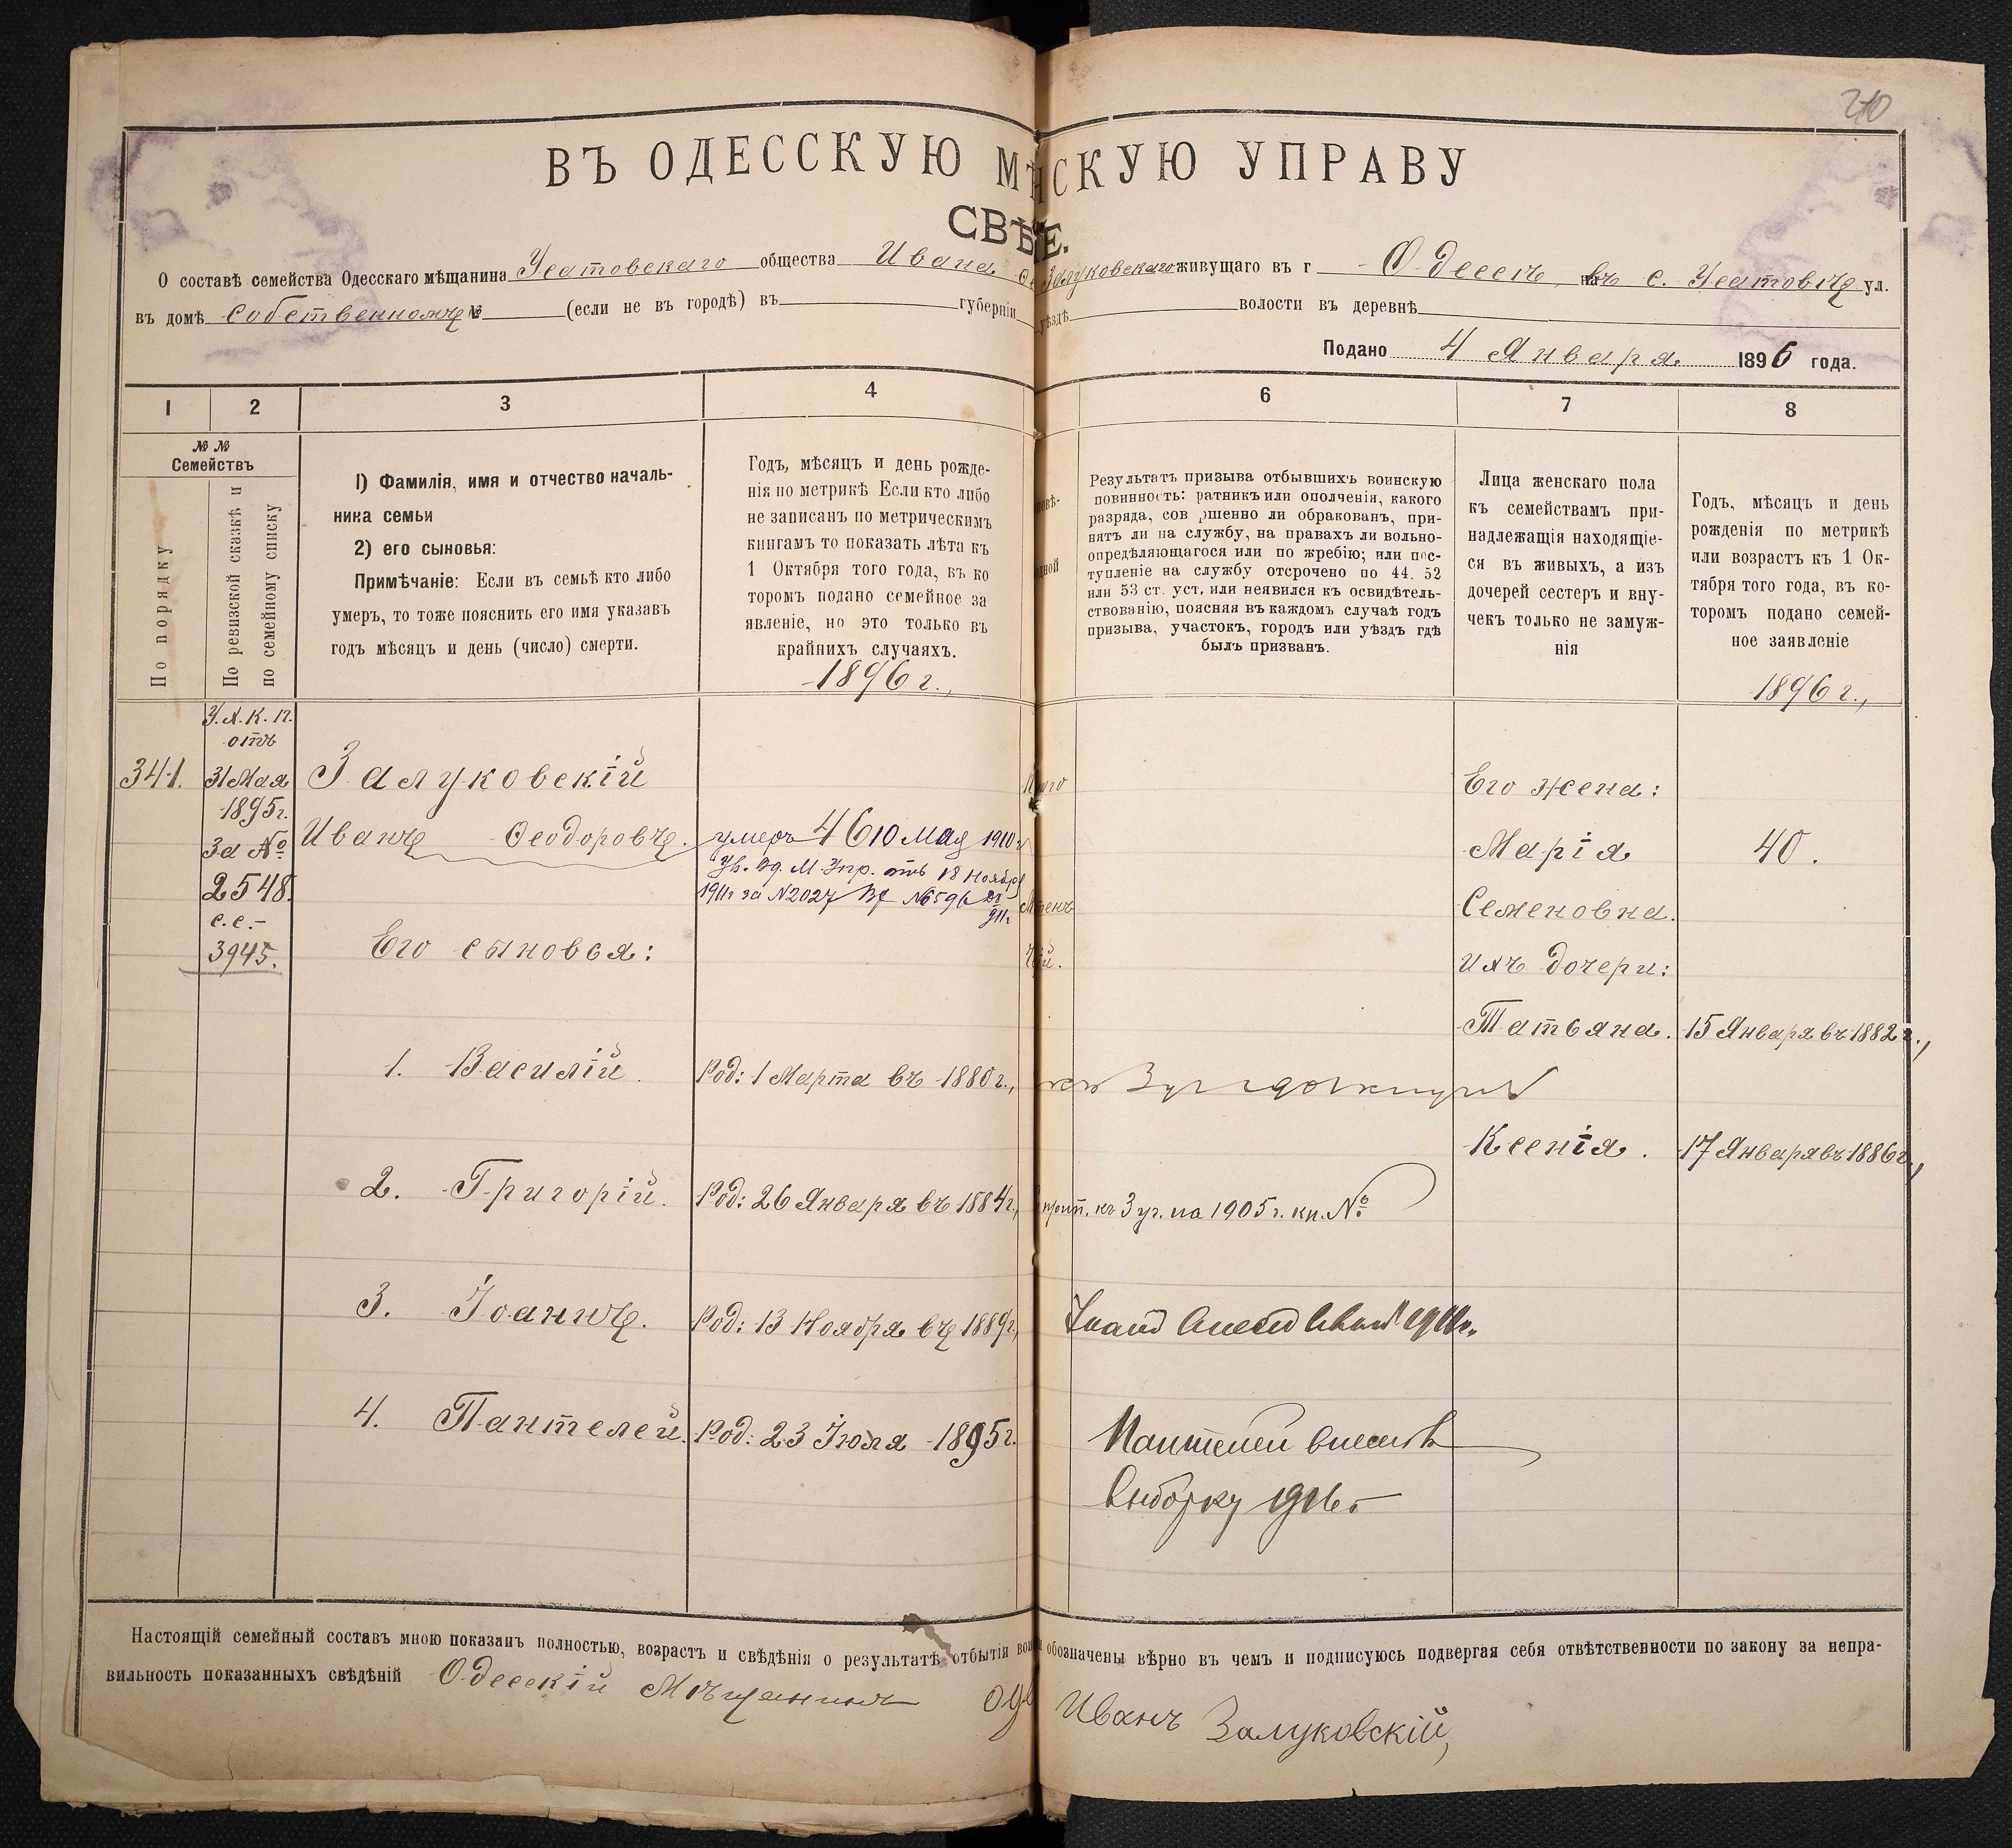 210
ВЪ ОДЕССКУЮ МѢ СКУЮ УПРАВУ
СВѢ Е.
О составѣ семейства Одесскаго мѣщанина Усатовскаго общества Ивана Залуковскаго живущаго въ г Одессѣ, въ с. Усатовѣ ул.
въ домѣ собственномъ № (если не въ городѣ) въ губерніи уѣздѣ волости въ деревнѣ
Подано 4 Января 1896 года.
1 2 3 4 6 7 8
№ №
Семействъ
По порядку
По ревизской сказкѣ и
по семейному списку
1) Фамилія, имя и отчество началь-
ника семьи
2) его сыновья:
Примѣчаніе: Если въ семьѣ кто либо
умеръ, то тоже пояснить его имя указавъ
годъ мѣсяцъ и день (число) смерти.
Годъ, мѣсяцъ и день рожде-
нія по метрикѣ Если кто либо
не записанъ по метрическимъ
книгамъ то показать лѣта къ
1 Октября того года, въ ко
торомъ подано семейное за
явленіе, но это только въ
крайнихъ случаяхъ.
1896 г.,
Результатъ призыва отбывшихъ воинскую
повинность: ратникъ или ополченія, какого
разряда, сов ршенно ли обракованъ, при-
нятъ ли на службу, на правахъ ли вольно-
опредѣляющагося или по жребію; или пос-
тупленіе на службу отсрочено по 44. 52
или 53 ст. уст. или неявился къ освидѣтель-
ствованію, поясняя въ каждомъ случаѣ годъ
призыва, участокъ, городъ или уѣздъ гдѣ
былъ призванъ.
Лица женскаго пола
къ семействамъ при-
надлежащія находящіе-
ся въ живыхъ, а изъ
дочерей сестеръ и вну-
чекъ только не замуж-
нія
Годъ, мѣсяцъ и день
рожденія по метрикѣ
или возрастъ къ 1 Ок-
тября того года, въ ко-
торомъ подано семей-
ное заявленіе
1896 г.,
341.
У. Х. К. П.
отъ
31 Мая
1895 г.
За №
2548.
с. с.-
3945.
Залуковскій
Иванъ Ѳеодоровъ.
умеръ 10 Мая 1910 г
Ув. Од. М. Упр. отъ 18 Ноября
1911 г за N 2027 Вх №6596
911 г
Его жена:
Марія 40.
Семеновна.
Ихъ дочери:
Татьяна. 15 Января въ 1882 г.,
Ксенія. 17 Января въ 1886 г.,
Его сыновья:
1. Василій. Род: 1 Марта въ 1880 г.,
2. Григорій. Род: 26 Января въ 1884 г., прип. къ 3 уч. на 1905 г. кн. №
3. Іоаннъ. Род: 13 Ноября въ 1889 г.,
4. Пантелей. Род: 23 Іюля 1895 г. Пантелей внесенъ в
выборку 1916 г
Настоящій семейный составъ мною показанъ полностью, возрастъ и свѣдѣнія о результатѣ отбытія обозначены вѣрно въ чемъ и подписуюсь подвергая себя отвѣтственности по закону за непра-
вильность показанныхъ свѣдѣній Одесскій Мѣщанинъ Иванъ Залуковскій,